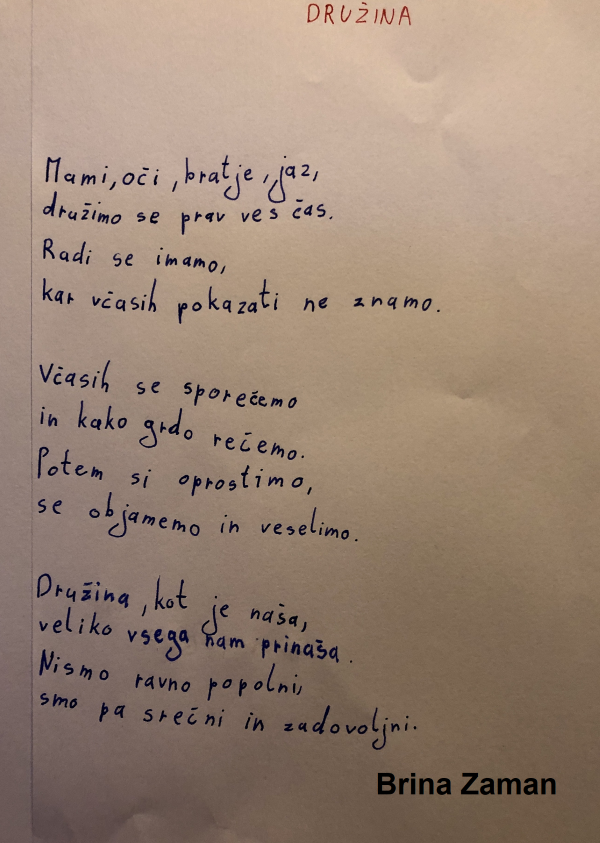 DRUŽINA
Mami, oči, bratje, jaz,
družimo se prav ves čas.
Radi se imamo,
kar včasih pokazati ne znamo.
Včasih se sporečemo
in kako grdo rečemo.
Potem si oprostimo,
se objamemo in veselimo.
Družina, kot je naša,
veliko vsega nam prinaša.
Nismo ravno popolni,
smo pa srečni in zadovoljni.
Brina Zaman